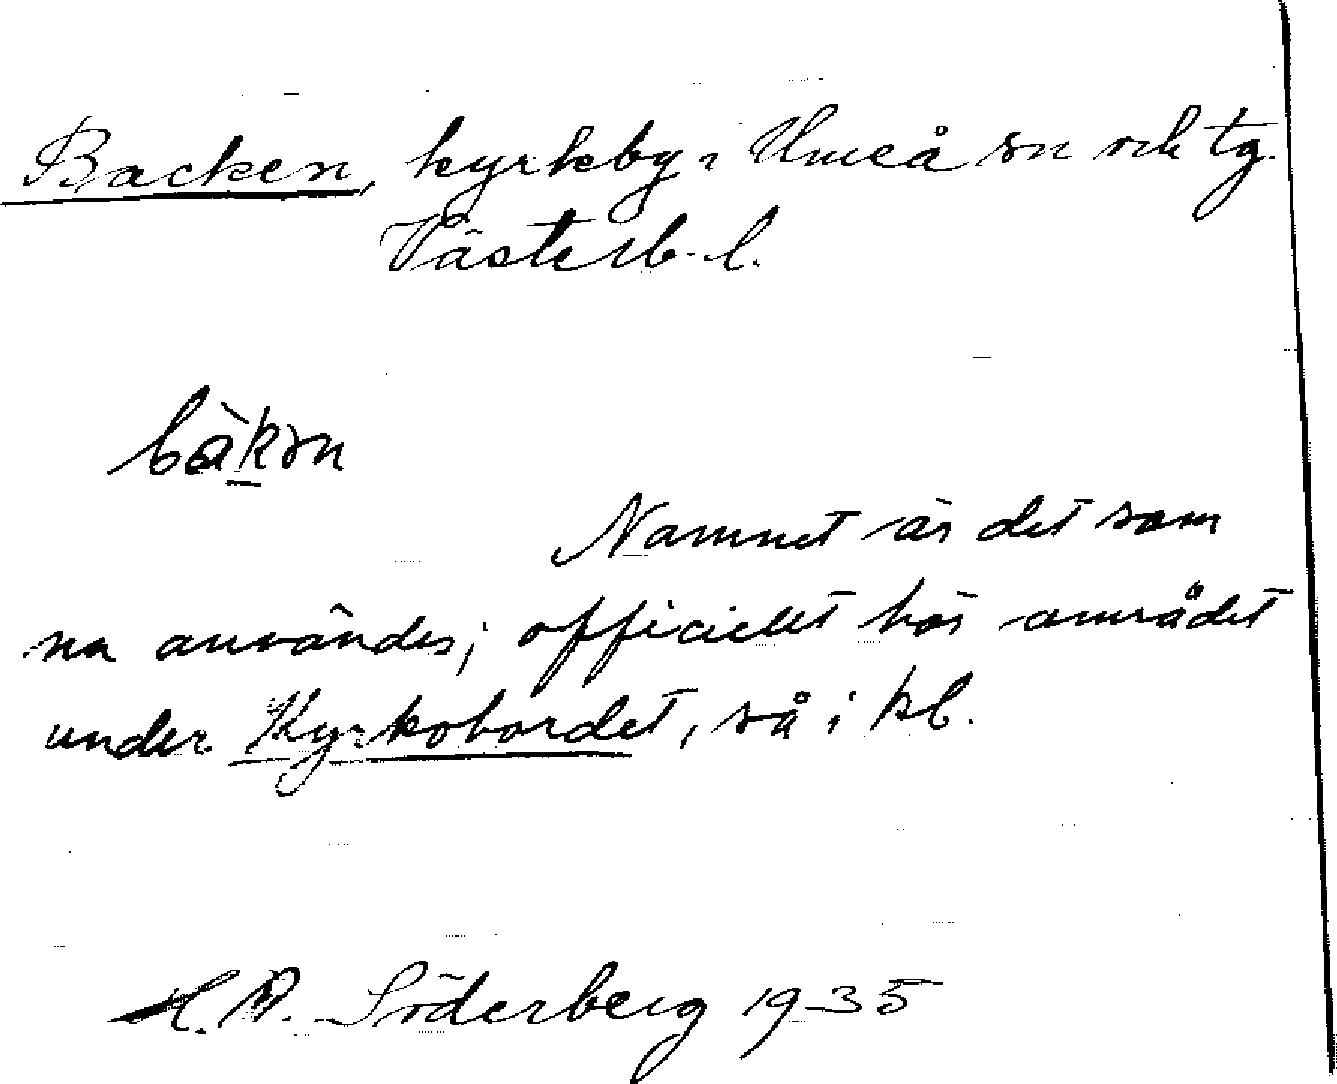 Backen, kyrkby i Umeå sn och tg.
Västerb. l.
bàkən
Namnet är det som
nu användes; officiellt hör området
under Kyrkobordet, så i kb.
Söderberg 1935